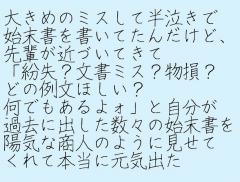 大きめのミスして半泣きで
始末書を書いてたんだけど、
先輩が近づいてきて
「紛失？文書ミス？物損？
どの例文ほしい？
何でもあるよォ」と自分が
過去に出した数々の始末書を
陽気な商人のように見せて
くれて本当に元気出た